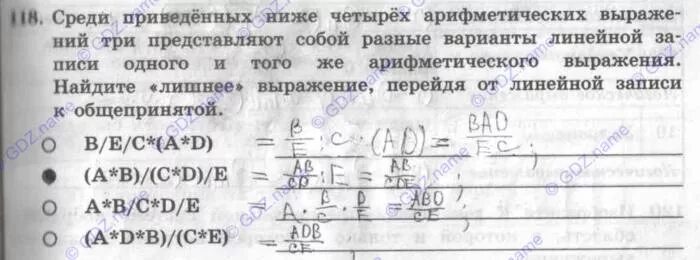 118. Среди приведённых ниже четырёх арифметических выраже-
ний три представляют собой разные варианты линейной за-
писи одного и того же арифметического выражения.
Найдите «лишнее» выражение, перейдя от линейной записи
к общепринятой.
B/E/C*(A*D) = B/E : C · (AD) = BAD/EC ;
(A*B)/(C*D)/E = AB/CD : E = AB/CDE ;
A*B/C*D/E = A · B/C · D/E = ABD/CE ;
(A*D*B)/(C*E) = ADB/CE ;
© GDZ.name